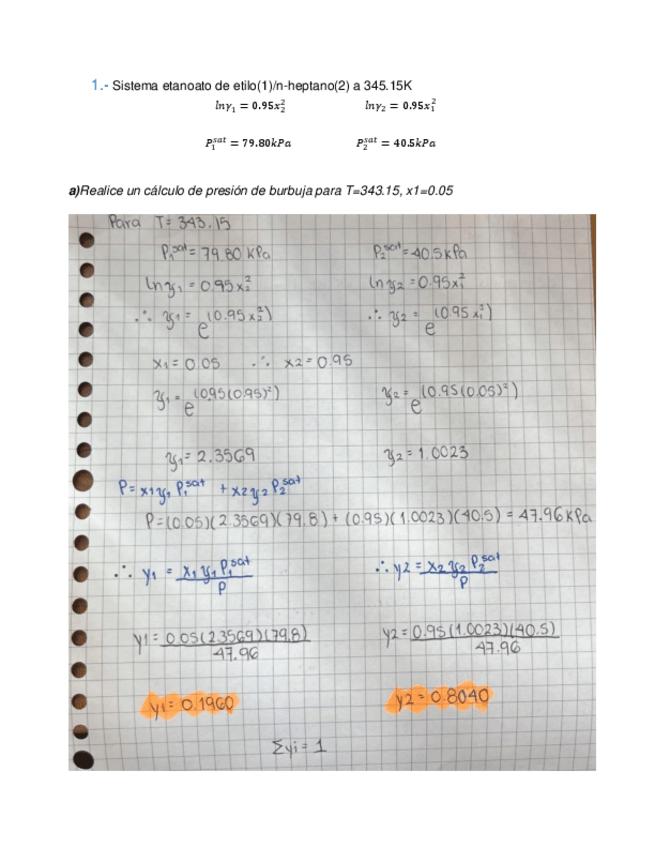 1.- Sistema etanoato de etilo(1)/n-heptano(2) a 345.15K
lnγ₁ = 0.95x₂² lnγ₂ = 0.95x₁²
P₁ˢᵃᵗ = 79.80kPa P₂ˢᵃᵗ = 40.5kPa
a)Realice un cálculo de presión de burbuja para T=343.15, x1=0.05
Para T= 343.15
P₁ˢᵃᵗ= 79.80 kPa P₂ˢᵃᵗ=40.5kPa
lnγ₁ = 0.95x₂² lnγ₂ =0.95x₁²
∴ γ₁ = e^(0.95x₂²) ∴ γ₂ = e^(0.95x₁²)
x₁=0.05 ∴ x2=0.95
γ₁= e^(0.95(0.95)²) γ₂= e^(0.95(0.05)²)
γ₁=2.3569 γ₂=1.0023
P=x₁γ₁P₁ˢᵃᵗ + x₂γ₂P₂ˢᵃᵗ
P=(0.05)(2.3569)(79.8)+(0.95)(1.0023)(40.5)=47.96kPa
∴ y₁ = x₁γ₁P₁ˢᵃᵗ/P ∴ y₂ = x₂γ₂P₂ˢᵃᵗ/P
y1= 0.05(2.3569)(79.8)/47.96 y2= 0.95(1.0023)(40.5)/47.96
y1= 0.1960 y2= 0.8040
Σyi = 1